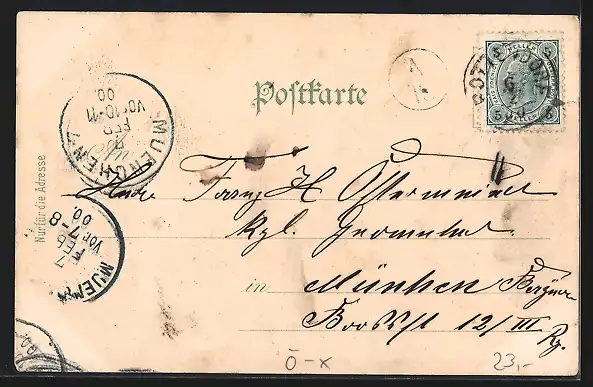 Postkarte
HELLER
5 5
GOTTSDORF
MUENCHEN 7
7 FEB
VOR 10-11
00
Nur für die Adresse
MUEN
7 FEB
VOR 7-8
00
Herrn Franz H. Ostermeier
Kgl. Geometer
in München Bayern
12/III
Ö-X 23,-